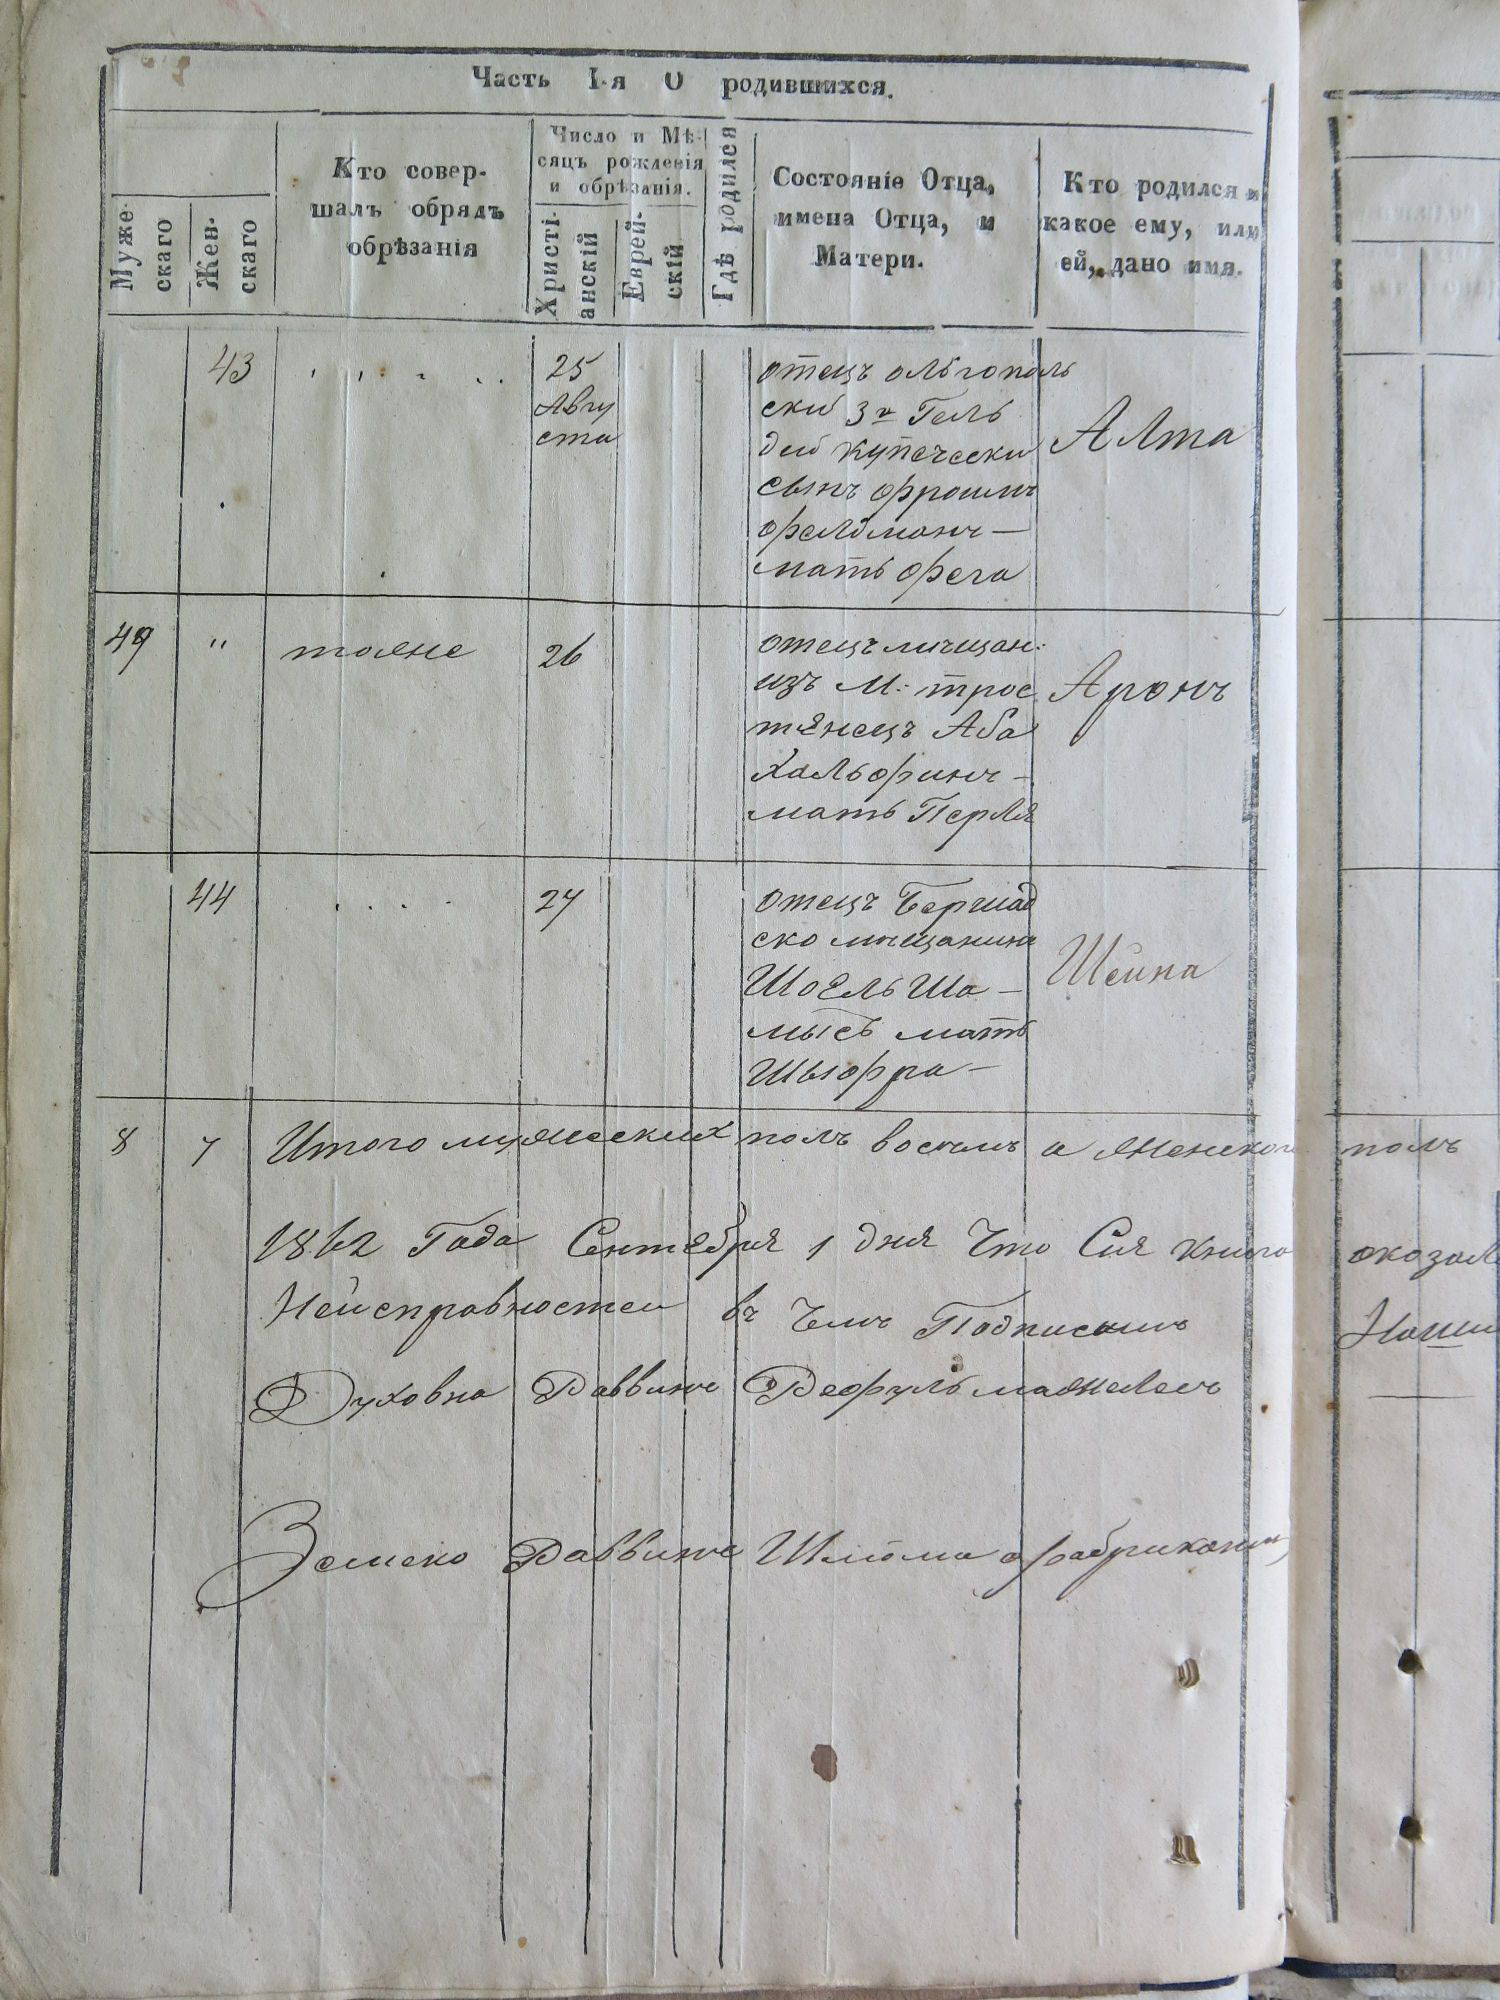 Часть I-я О родившихся.
Муже-
скаго
Жен-
скаго
Кто совер-
шалъ обрядъ
обрѣзанія
Число и Мѣ-
сяцъ рожденія
и обрѣзанія.
Христі-
анскій
Еврей-
скій
Гдѣ родился
Состояніе Отца,
имена Отца, и
Матери.
Кто родился и
какое ему, или
ей, дано имя.
43
25
Авгу
ста
отецъ ольгополь
ски 3й Гель
дій купечески
сынъ фроимъ
фелдманъ —
мать фега
Алта
49 " тояне 26
отецъ мищан:
изъ М: трос
тянецъ Аба
Хальфинъ —
мать Перля
Аронъ
44
27
отецъ Бершад
ско мещанина
Шоель Ша —
мысъ мать
Шыфра —
Шейна
8 7 Итого мужеских полъ восемъ а женского полъ
1862 Года Сентебря 1 дня Что Сия книга оказал
Неисправностей въ Чемъ Подписемъ Наши
Духовна Раввинъ
Земско Раввинъ Шлома фабрикант